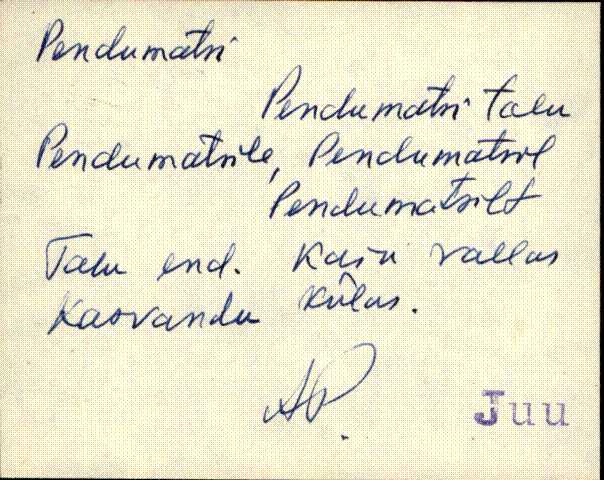 Pendumatsi
Pendumatsi talu
Pendumatsile, Pendumatsil
Pendumatsilt
Talu end. Kaiu vallas
Kasvandu külas.
AP.
Juu